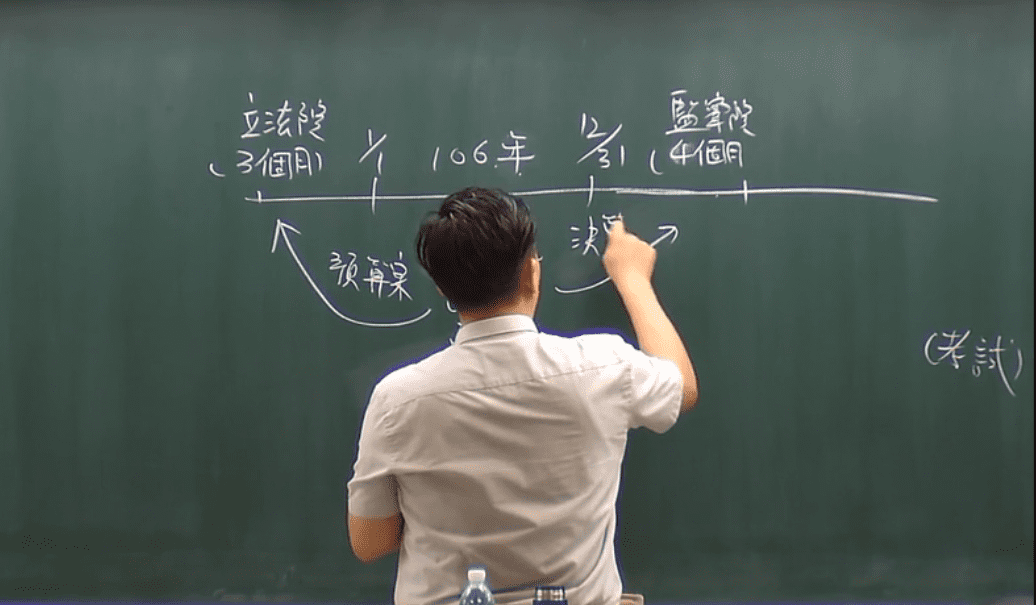 立法院
(3個月)
1/1
106年
12/31
監察院
(4個月
預算案
決
(考試)